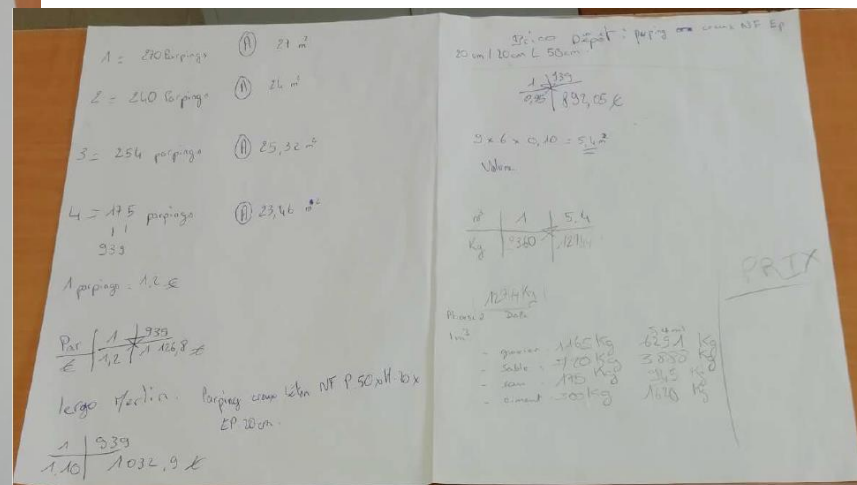 1 = 270 Parpings Ⓐ 27 m²
2 = 240 Parpings Ⓐ 24 m²
3 = 254 parpings Ⓐ 25,32 m²
4 = 175 parpings Ⓐ 23,46 m²
939
1 parpings = 1,2 €
Par | 1 | 939
€ | 1,2 | 1 126,8 €
Parping creux béton NF P 50 x H. 20 x
EP 20 cm.
1 | 939
1,10 | 1032,9 €
Brico Dépôt : parping creux NF Ep
20 cm / 20 cm L 50 cm
1 | 939
0,95 | 892,05 €
9 x 6 x 0,10 = 5,4 m³
Volume
m³ | 1 | 5,4
Kg
PRIX
1m³
- gravier 1165 Kg 6291 Kg
- Sable Kg Kg
- eau Kg Kg
- ciment 300 Kg 1620 Kg